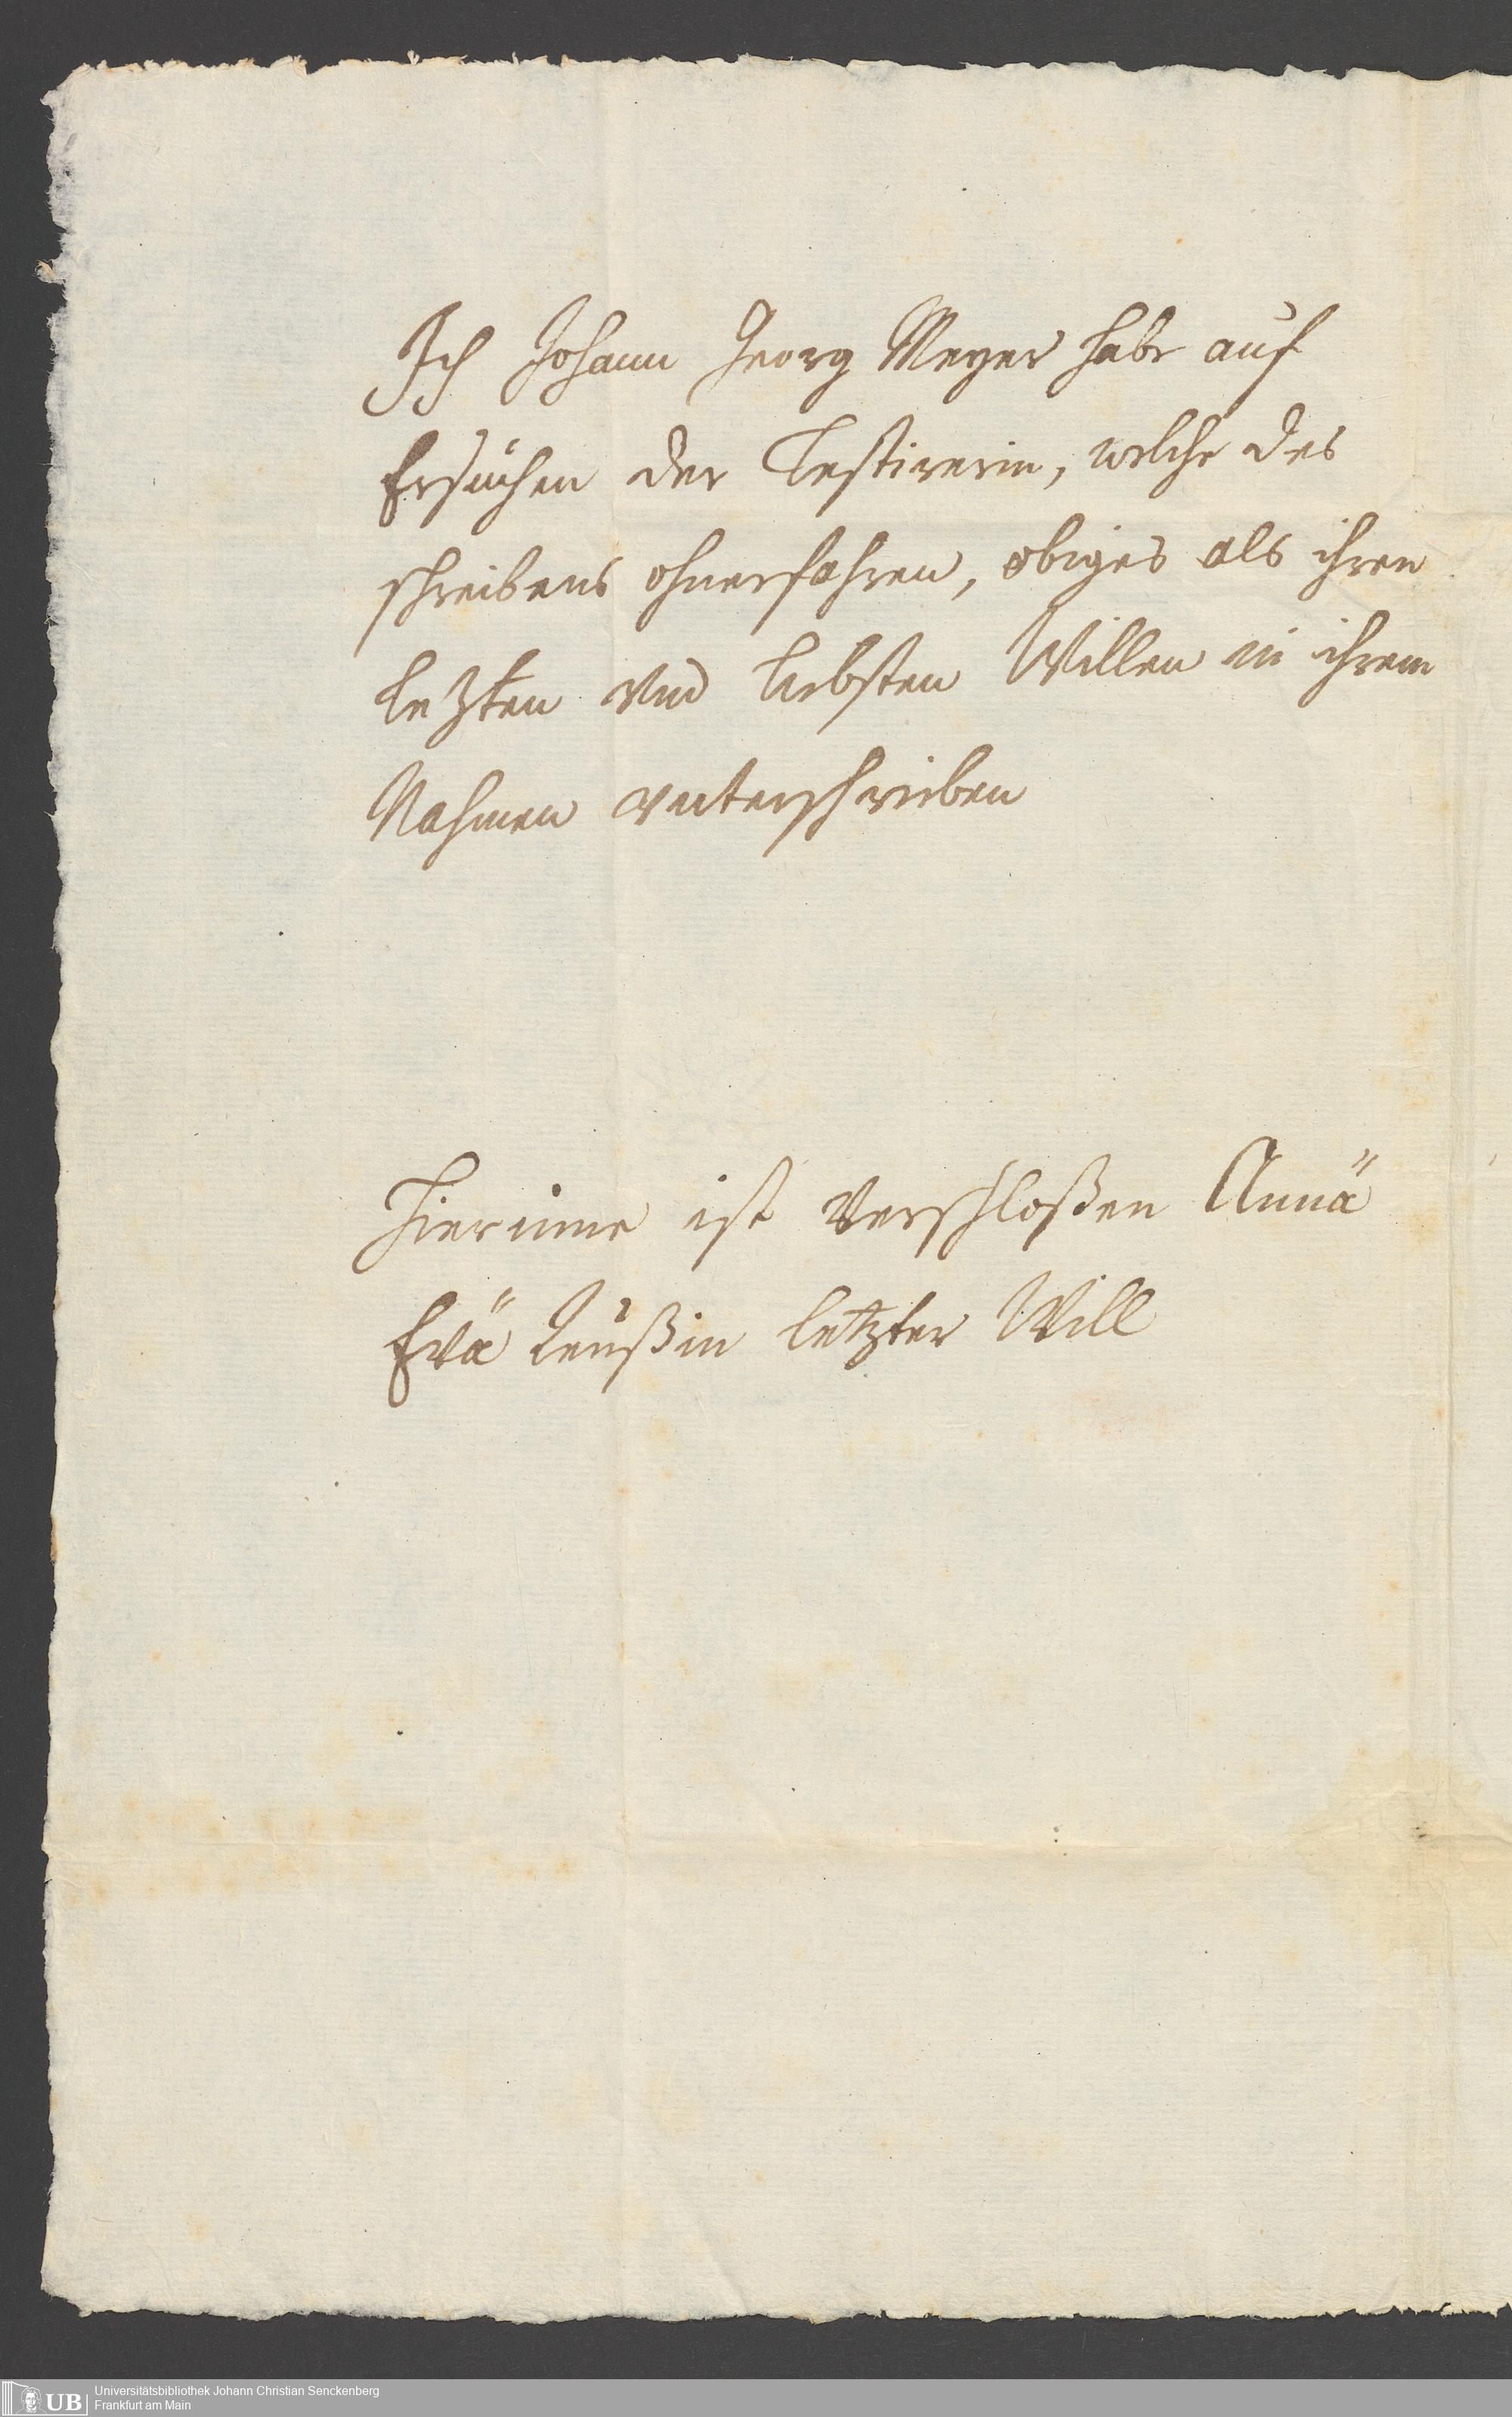 Ich Johann Georg Meyer habe auf
Ersuchen der Testirerin, welche des
schreibens ohnerfahren, obiges als ihren
letzten und liebsten Willen in ihrem
Nahmen unterschrieben
Hierinne ist verschloßen Annä
Evä Leußin letzter Will
UB
Universitätsbibliothek Johann Christian Senckenberg
Frankfurt am Main